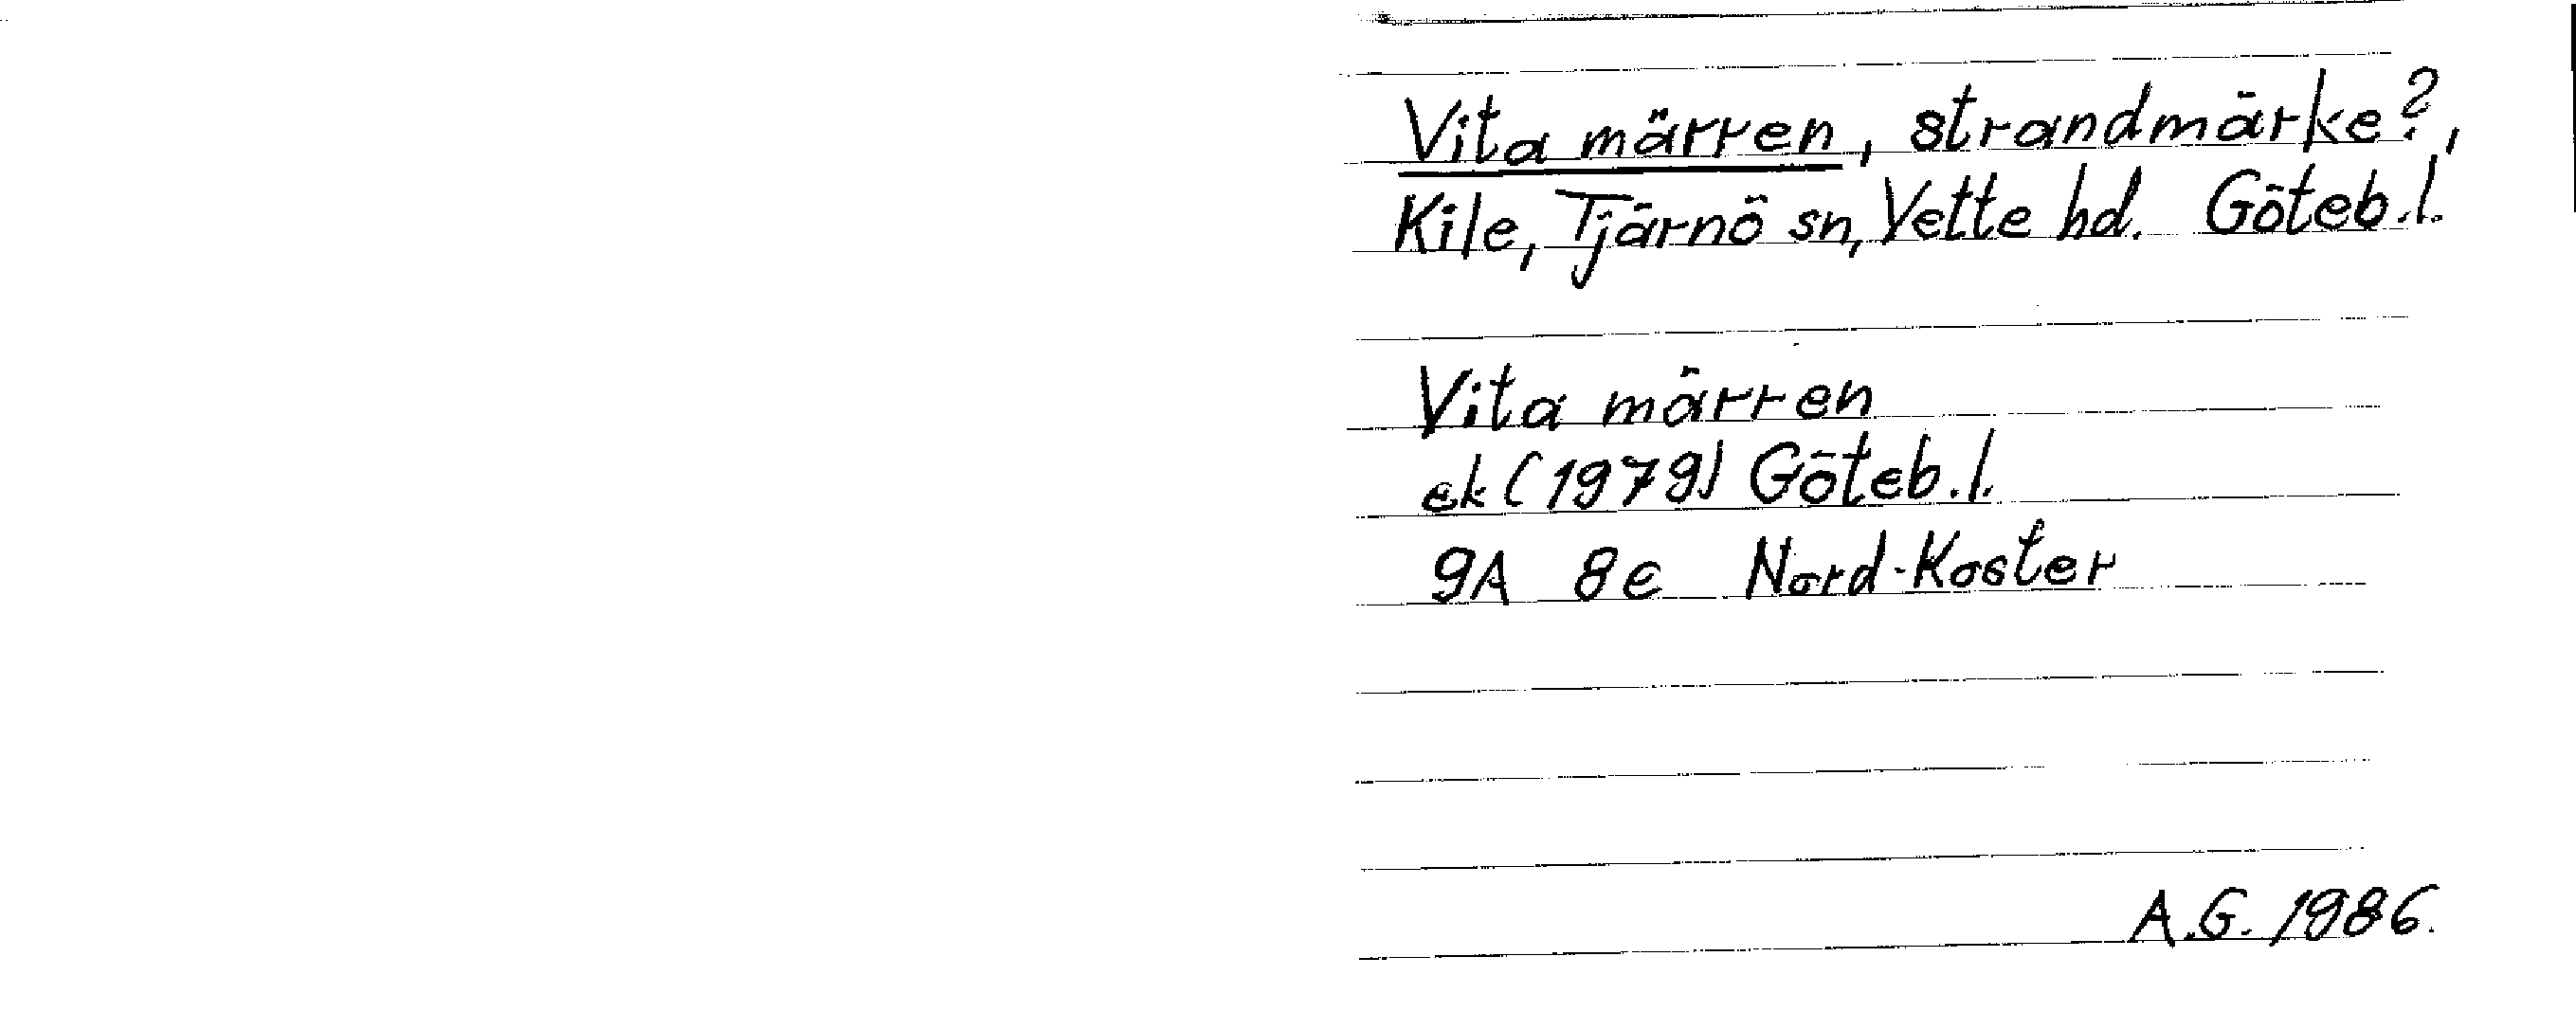 Vita märren, strandmärke?,
Kile, Tjärnö sn, Vette hd. Göteb.l.
Vita märren
ek (1979) Göteb.l.
9A 8e Nord-Koster
A.G. 1986.